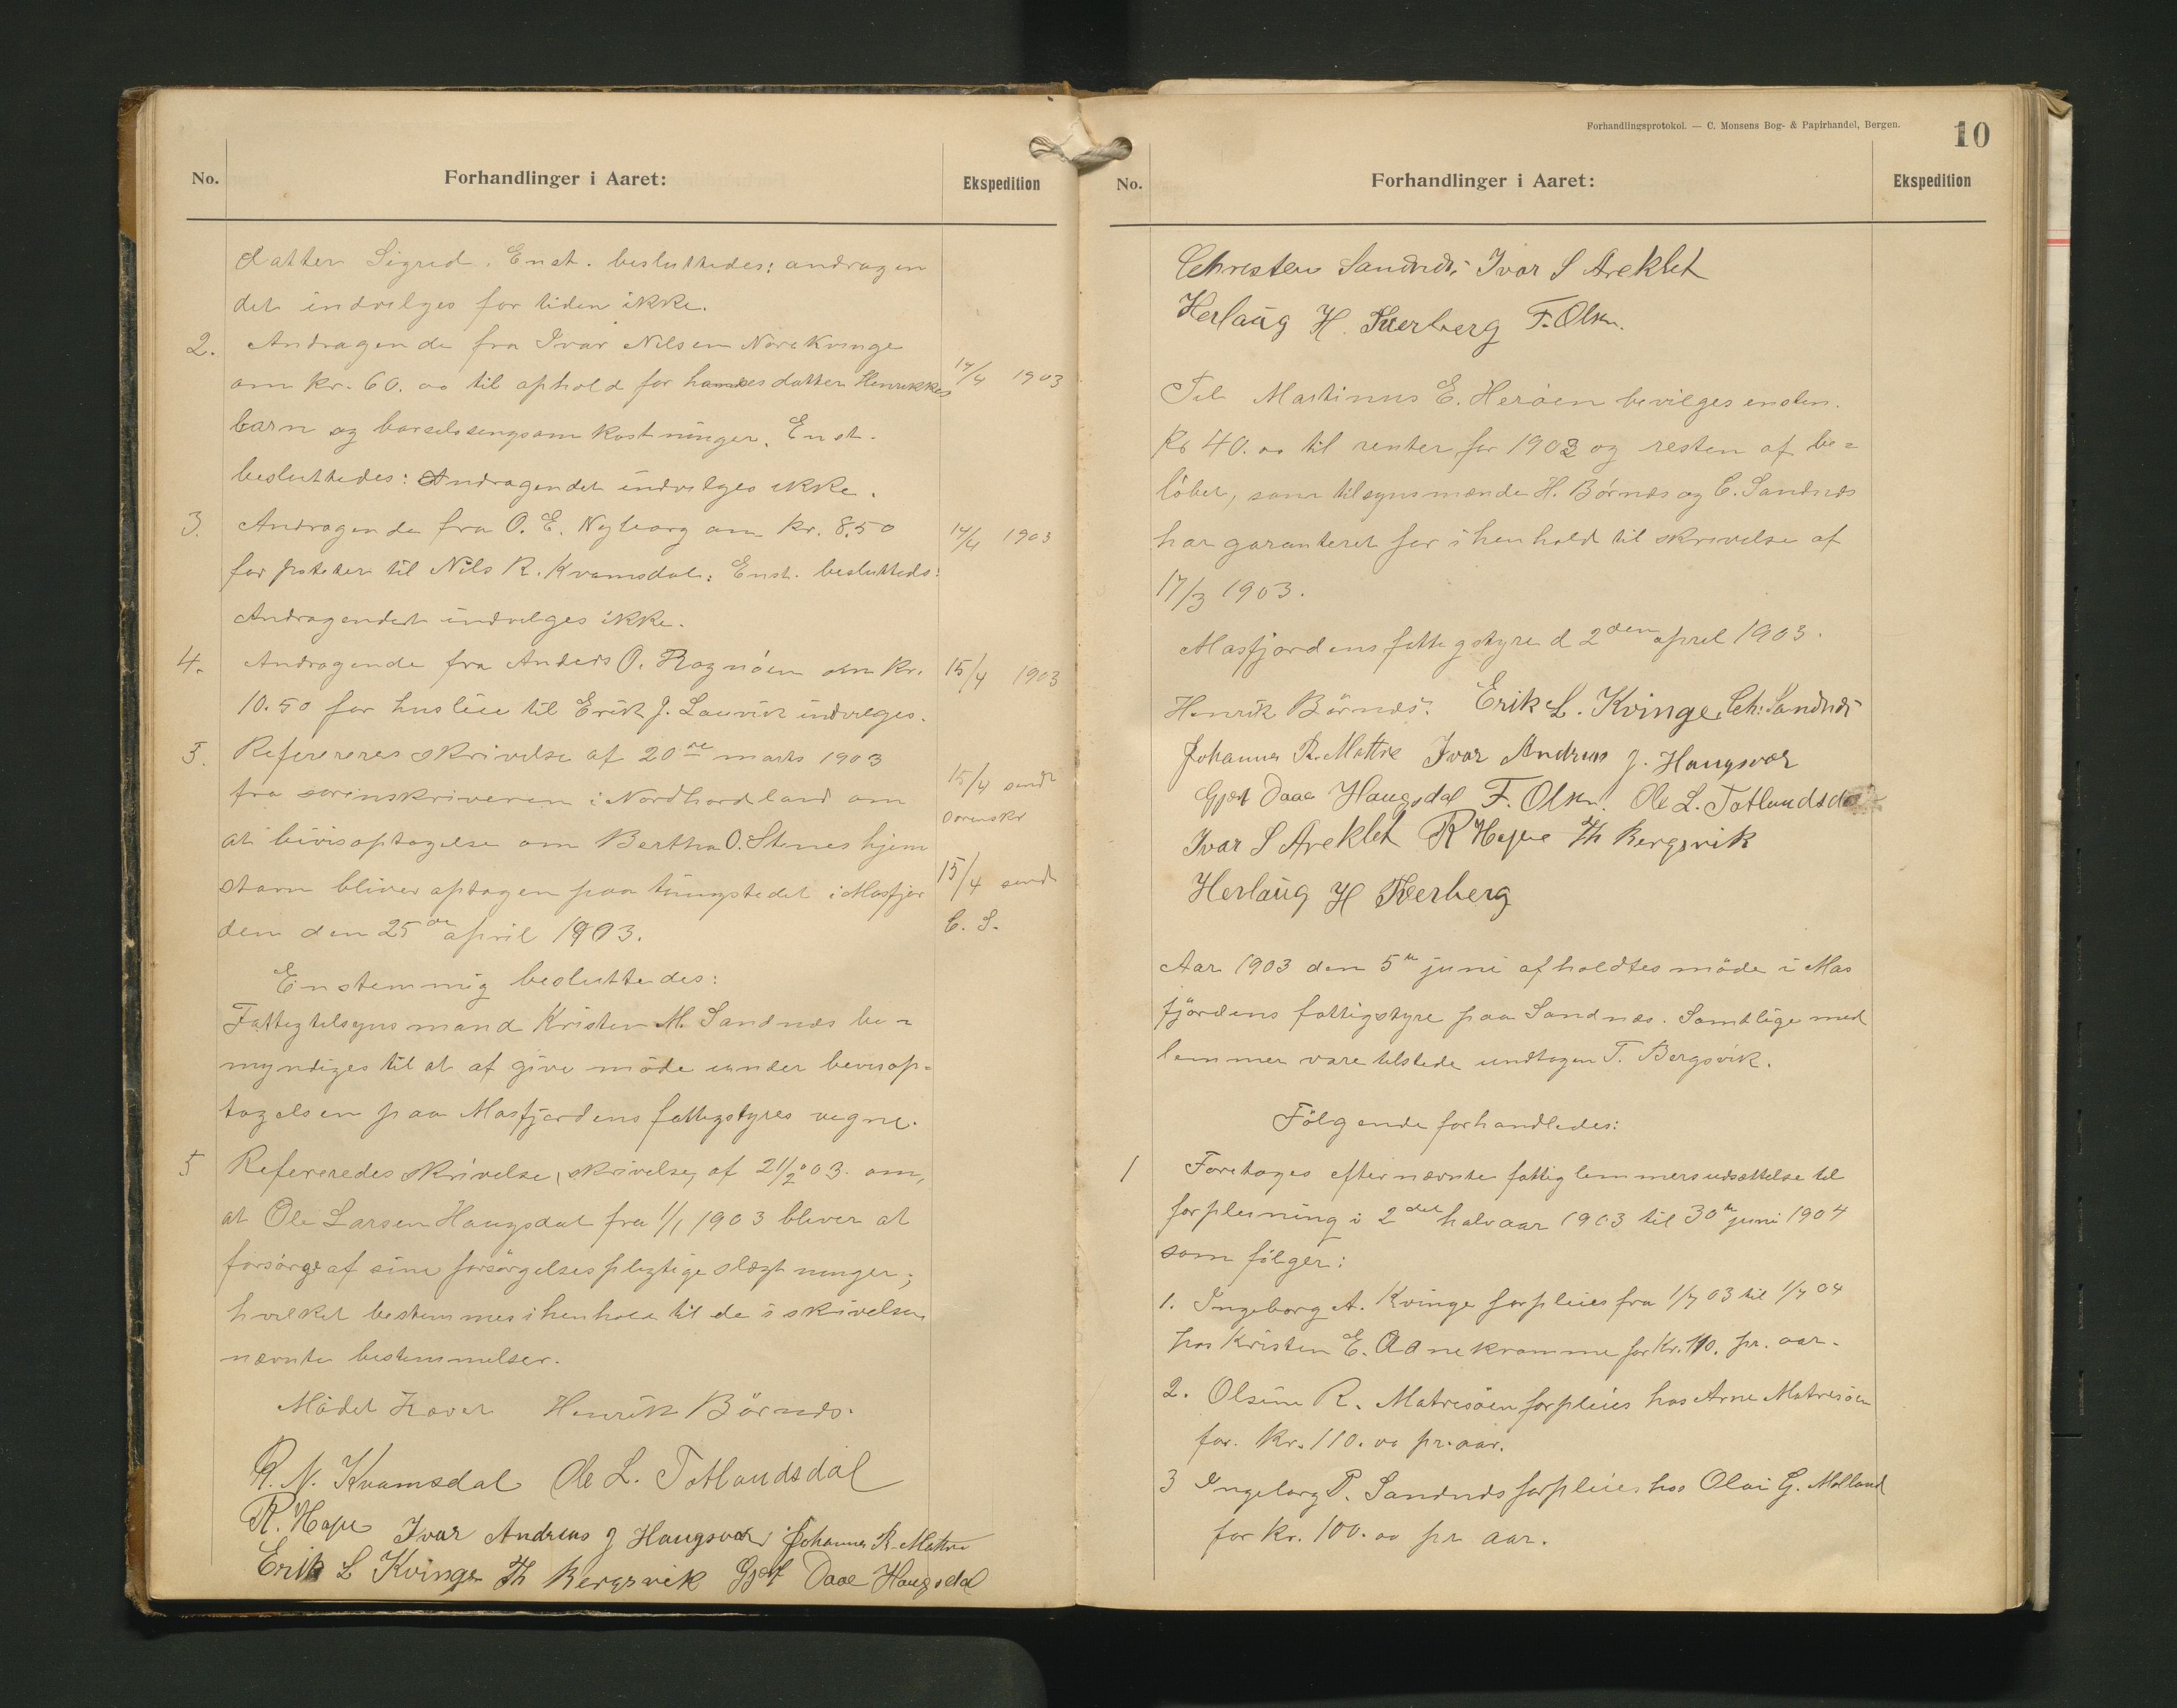 No.
Forhandlinger i Aaret:
Ekspedition
datter Sigrid. Enst. besluttedes: andragen
det indvilges for tiden ikke.
2. Andragende fra Ivar Nilsen Nørekvinge
om kr. 60.00 til ophold for hans datter Henrikkes 14/4 1903
barn og barselsengsomkostninger. Enst.
besluttedes: Andragendet indvilges ikke.
3. Andragende fra O. E. Nyborg om kr. 8,50 14/4 1903
for poteter til Nils R. Kvamsdal: Enst. beslutteds:
Andragendet indvilges ikke.
4. Andragende fra Anders O. Ragnöen om kr. 15/4 1903
10.50 for husleie til Erik J. Lauvik indvilges.
5. Refereres skrivelse af 20de marts 1903
fra sorenskriveren i Nordhordland om 15/4 sendt
sorenskr
at bevisoptagelse om Bertha O. Stenes hjem
stavn bliver optagen paa tingstedet i Masfjor 15/4 sendt
den den 25de april 1903. C. S.
Enstemmig besluttedes:
Fattigtilsynsmand Kristen M. Sandnæs be=
myndiges til at af give möde under bevisop=
tagelsen paa Masfjordens fattigstyres vegne.
5 Refereredes skrivelse, skrivelse, af 21/2 03. om,
at Ole Larsen Haugsdal fra 1/1 1903 bliver at
forsörge af sine forsörgelsespligtige slægtninger;
hvilket bestemmes i henhold til de i skivelsen
nævnte bestemmelser.
Mödet hævet Henrik Börnæs.
R. N. Kvamsdal Ole L. Totlandsdal
R. Hope Ivar Andreas J Haugsvær Johannes R. Matre
Erik L Kvinge Th Bergsvik Gjert Daae Haugsdal
Forhandlingsprotokol. — C. Monsens Bog- & Papirhandel, Bergen.
10
No.
Forhandlinger i Aaret:
Ekspedition
Christen Sandnæs Ivar S Areklet
Herlaug H. Tverberg F. Olsen.
Til Martinus E. Heröen bevilges ensten.
Kr 40.00 til renter for 1903 og resten af be=
löbet, som tilsynsmænde H. Börnæs og C. Sandnæs
har garanteret for i henhold til skrivelse af
17/3 1903.
Masfjordens fattigstyre d 2den april 1903.
Henrik Börnæs. Erik L. Kvinge, Ch: Sandnæs
Johannes R. Matre Ivar Andreas J. Haugsvær
Gjert Daae Haugsdal F. Olsen. Ole L. Totlandsdal
Ivar S Areklet R Hope Th Bergsvik
Herlaug H Tverberg
Aar 1903 den 5te juni afholdtes möde i Mas
fjordens fattigstyre paa Sandnæs. Samtlige med
lemmer vare tilstede undtagen T. Bergsvik.
Fölgende forhandledes:
1 Foretages efternævnte fattiglemmers udsættelse til
forpleining i 2det halvaar 1903 til 30te juni 1904
som fölger:
1. Ingeborg A. Kvinge forpleies fra 1/7 03 til 1/7 04
hos Kristen E. Adnekvamme for Kr. 110. pr. aar.
2. Olsine R. Matresöen forpleies hos Arne Matresöen
for. kr. 110.00 pr. aar.
3 Ingeborg P. Sandnæs forpleies hos Olai G. Molland
for kr. 100.00 pr aar.